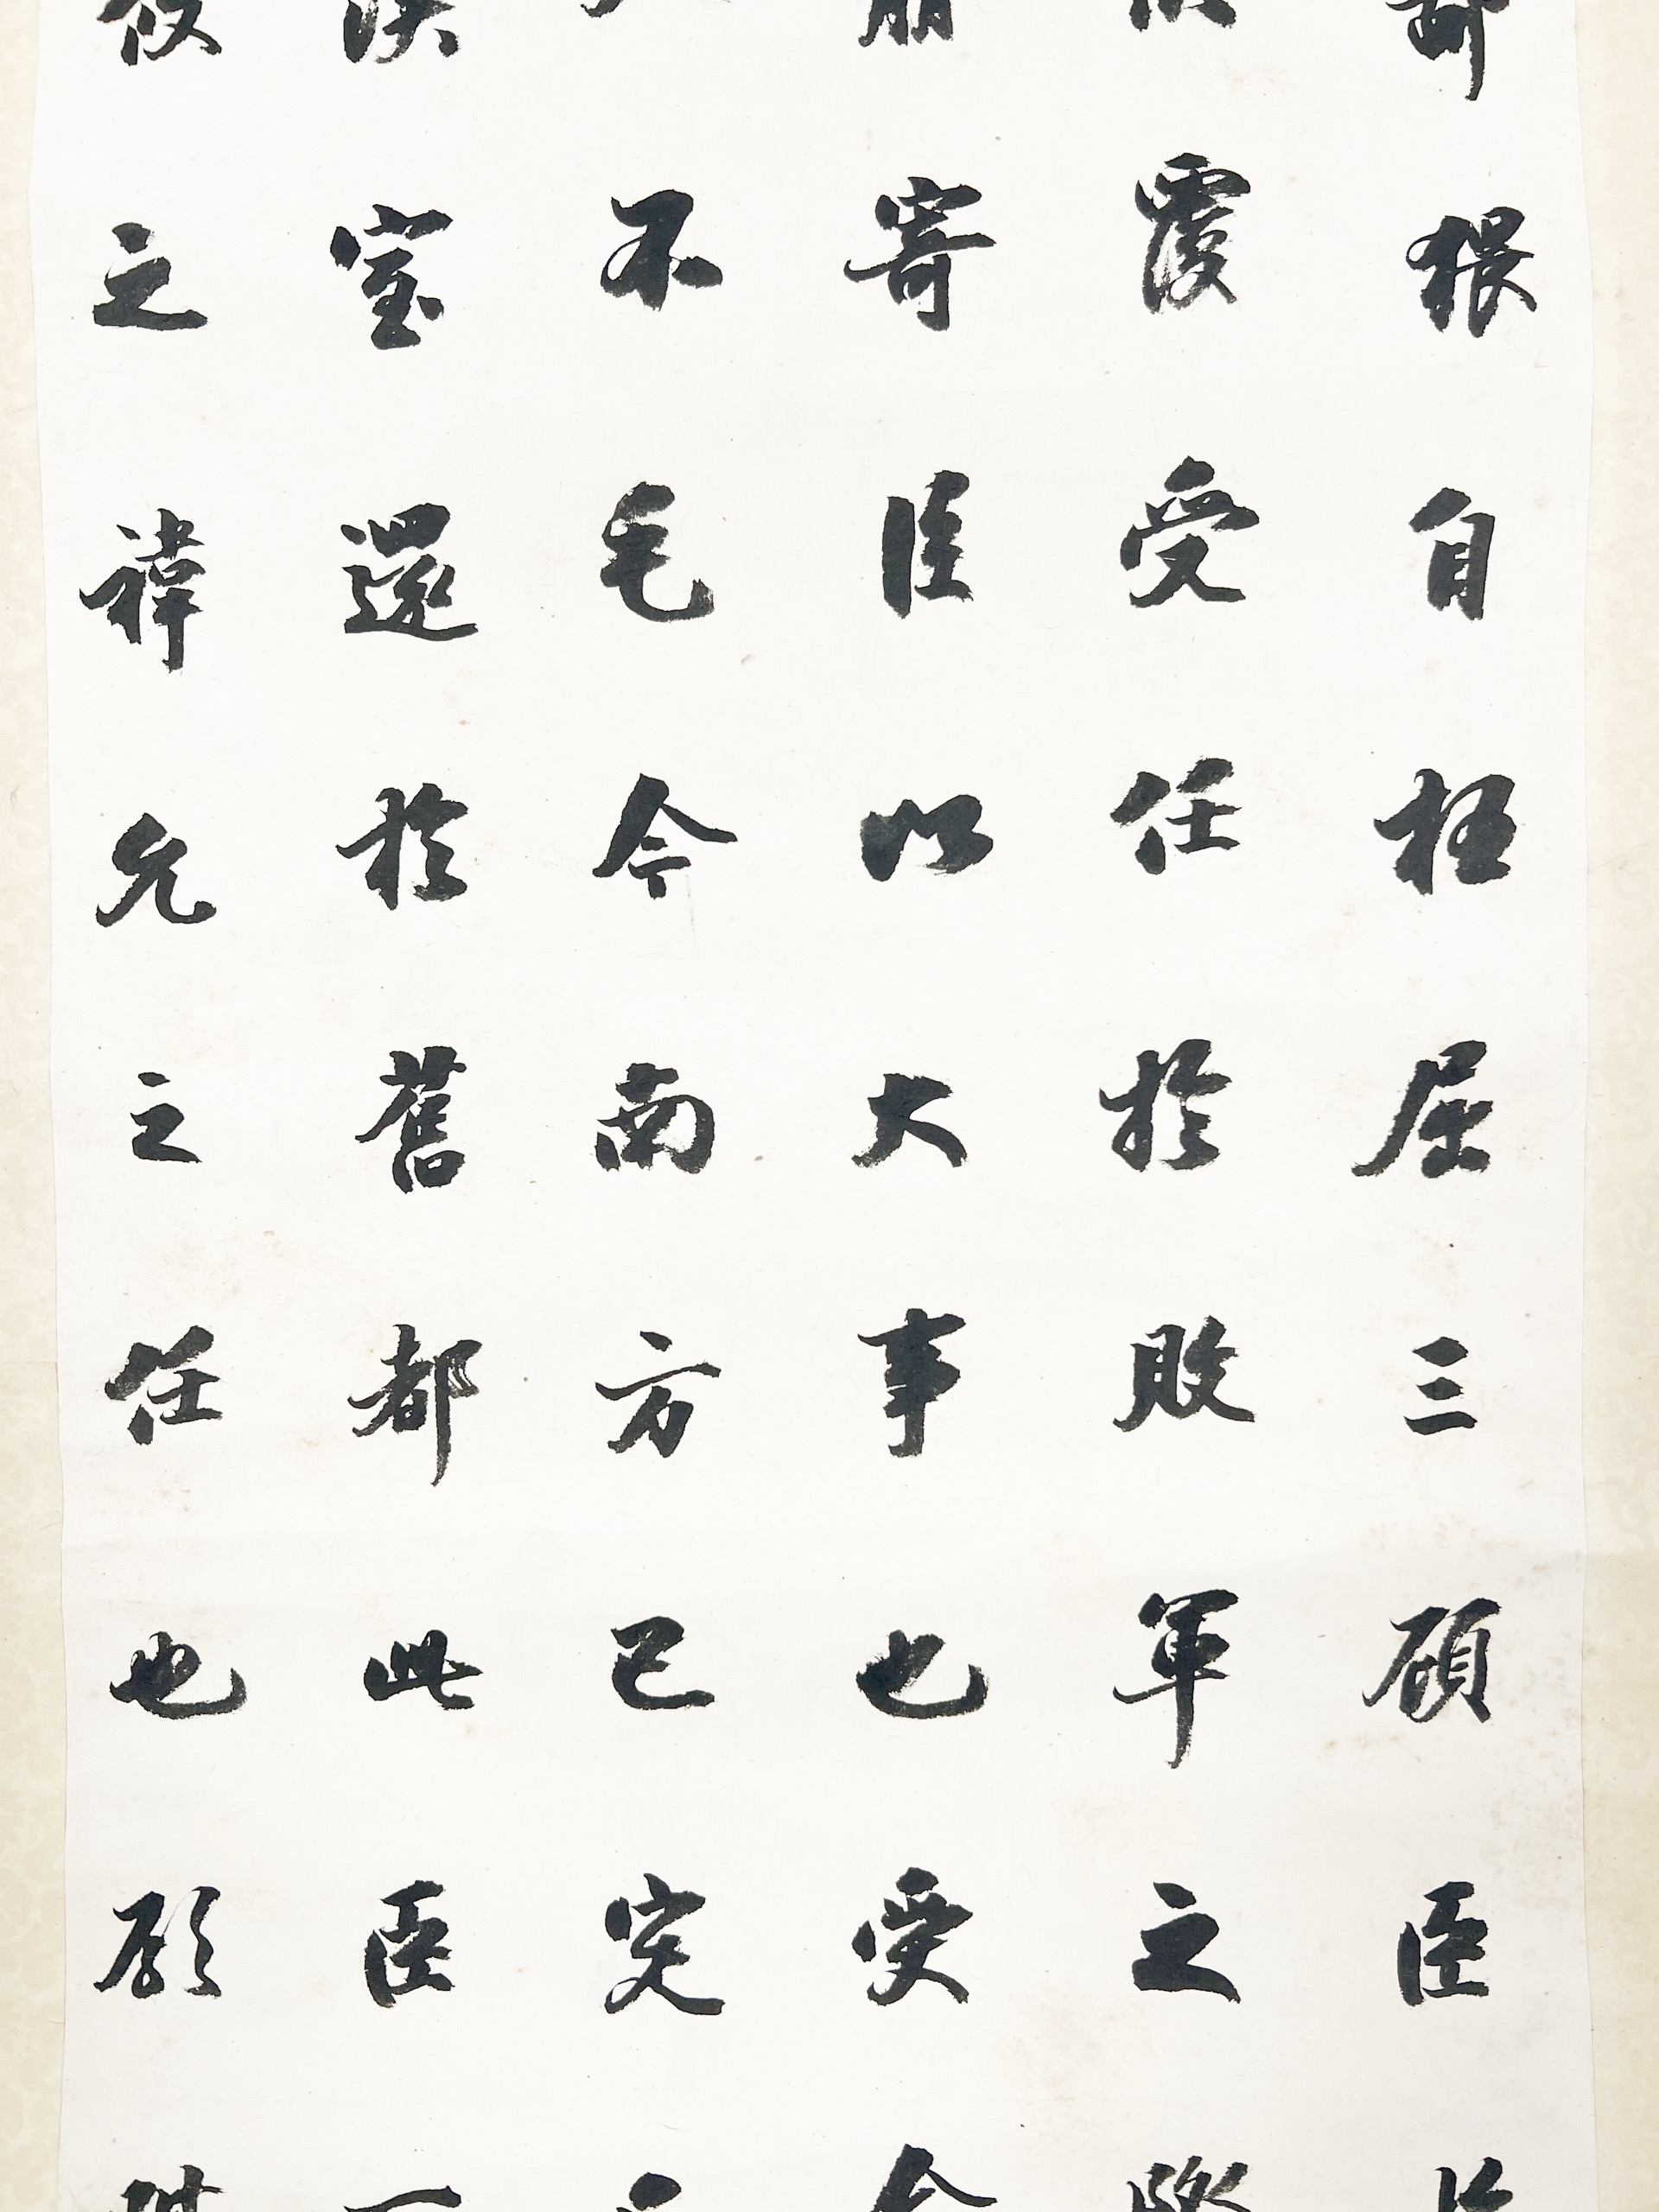 鄙猥自枉屈三顧臣於
覆受任於敗軍之際
崩寄臣以大事也受命
不毛今南方已定兵
漢室還於舊都此臣
攸之褘允之任也願陛